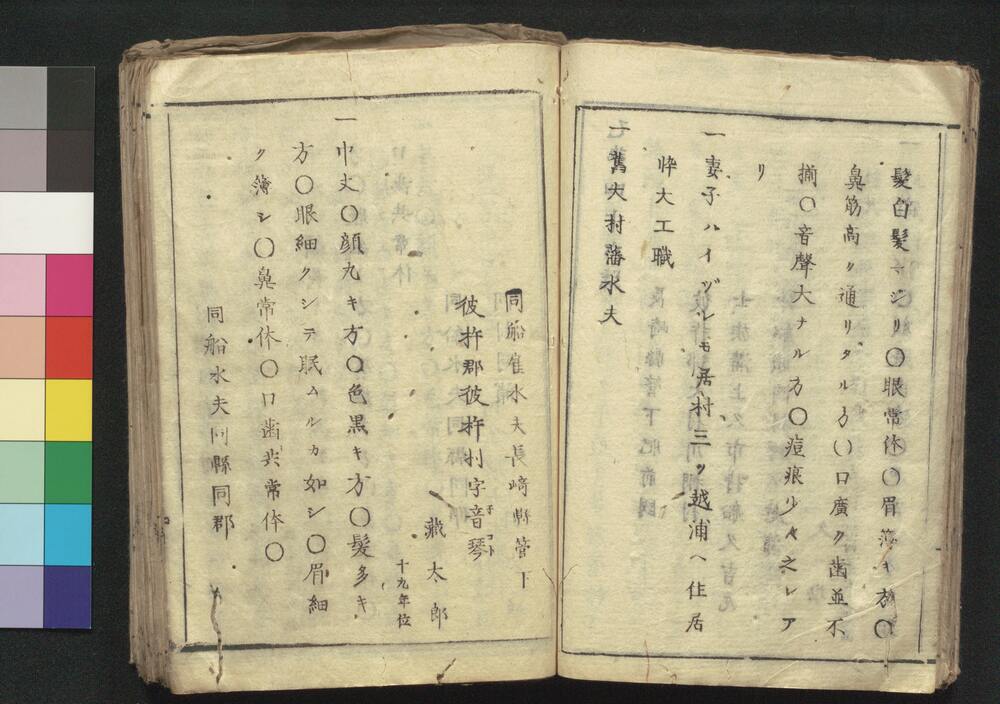 髪白髪マシリ〇眼常体〇眉薄キ方〇
鼻筋高ク通リタル方〇口廣ク歯並不
揃〇音聲大ナル方〇痘痕少々之レア
リ
一妻子ハイヅレモ居村三ツ越浦ヘ住居
悴大工職
七舊大村藩水夫
同船雇水夫長崎縣管下
彼杵郡彼杵村字音琴
オコト
藏太郎
十九年位
一巾丈〇顔丸キ方〇色黒キ方〇髪多キ
方〇眼細クシテ眠ムルカ如シ〇眉細
ク薄シ〇鼻常体〇口歯共常体〇
同船水夫同縣同郡